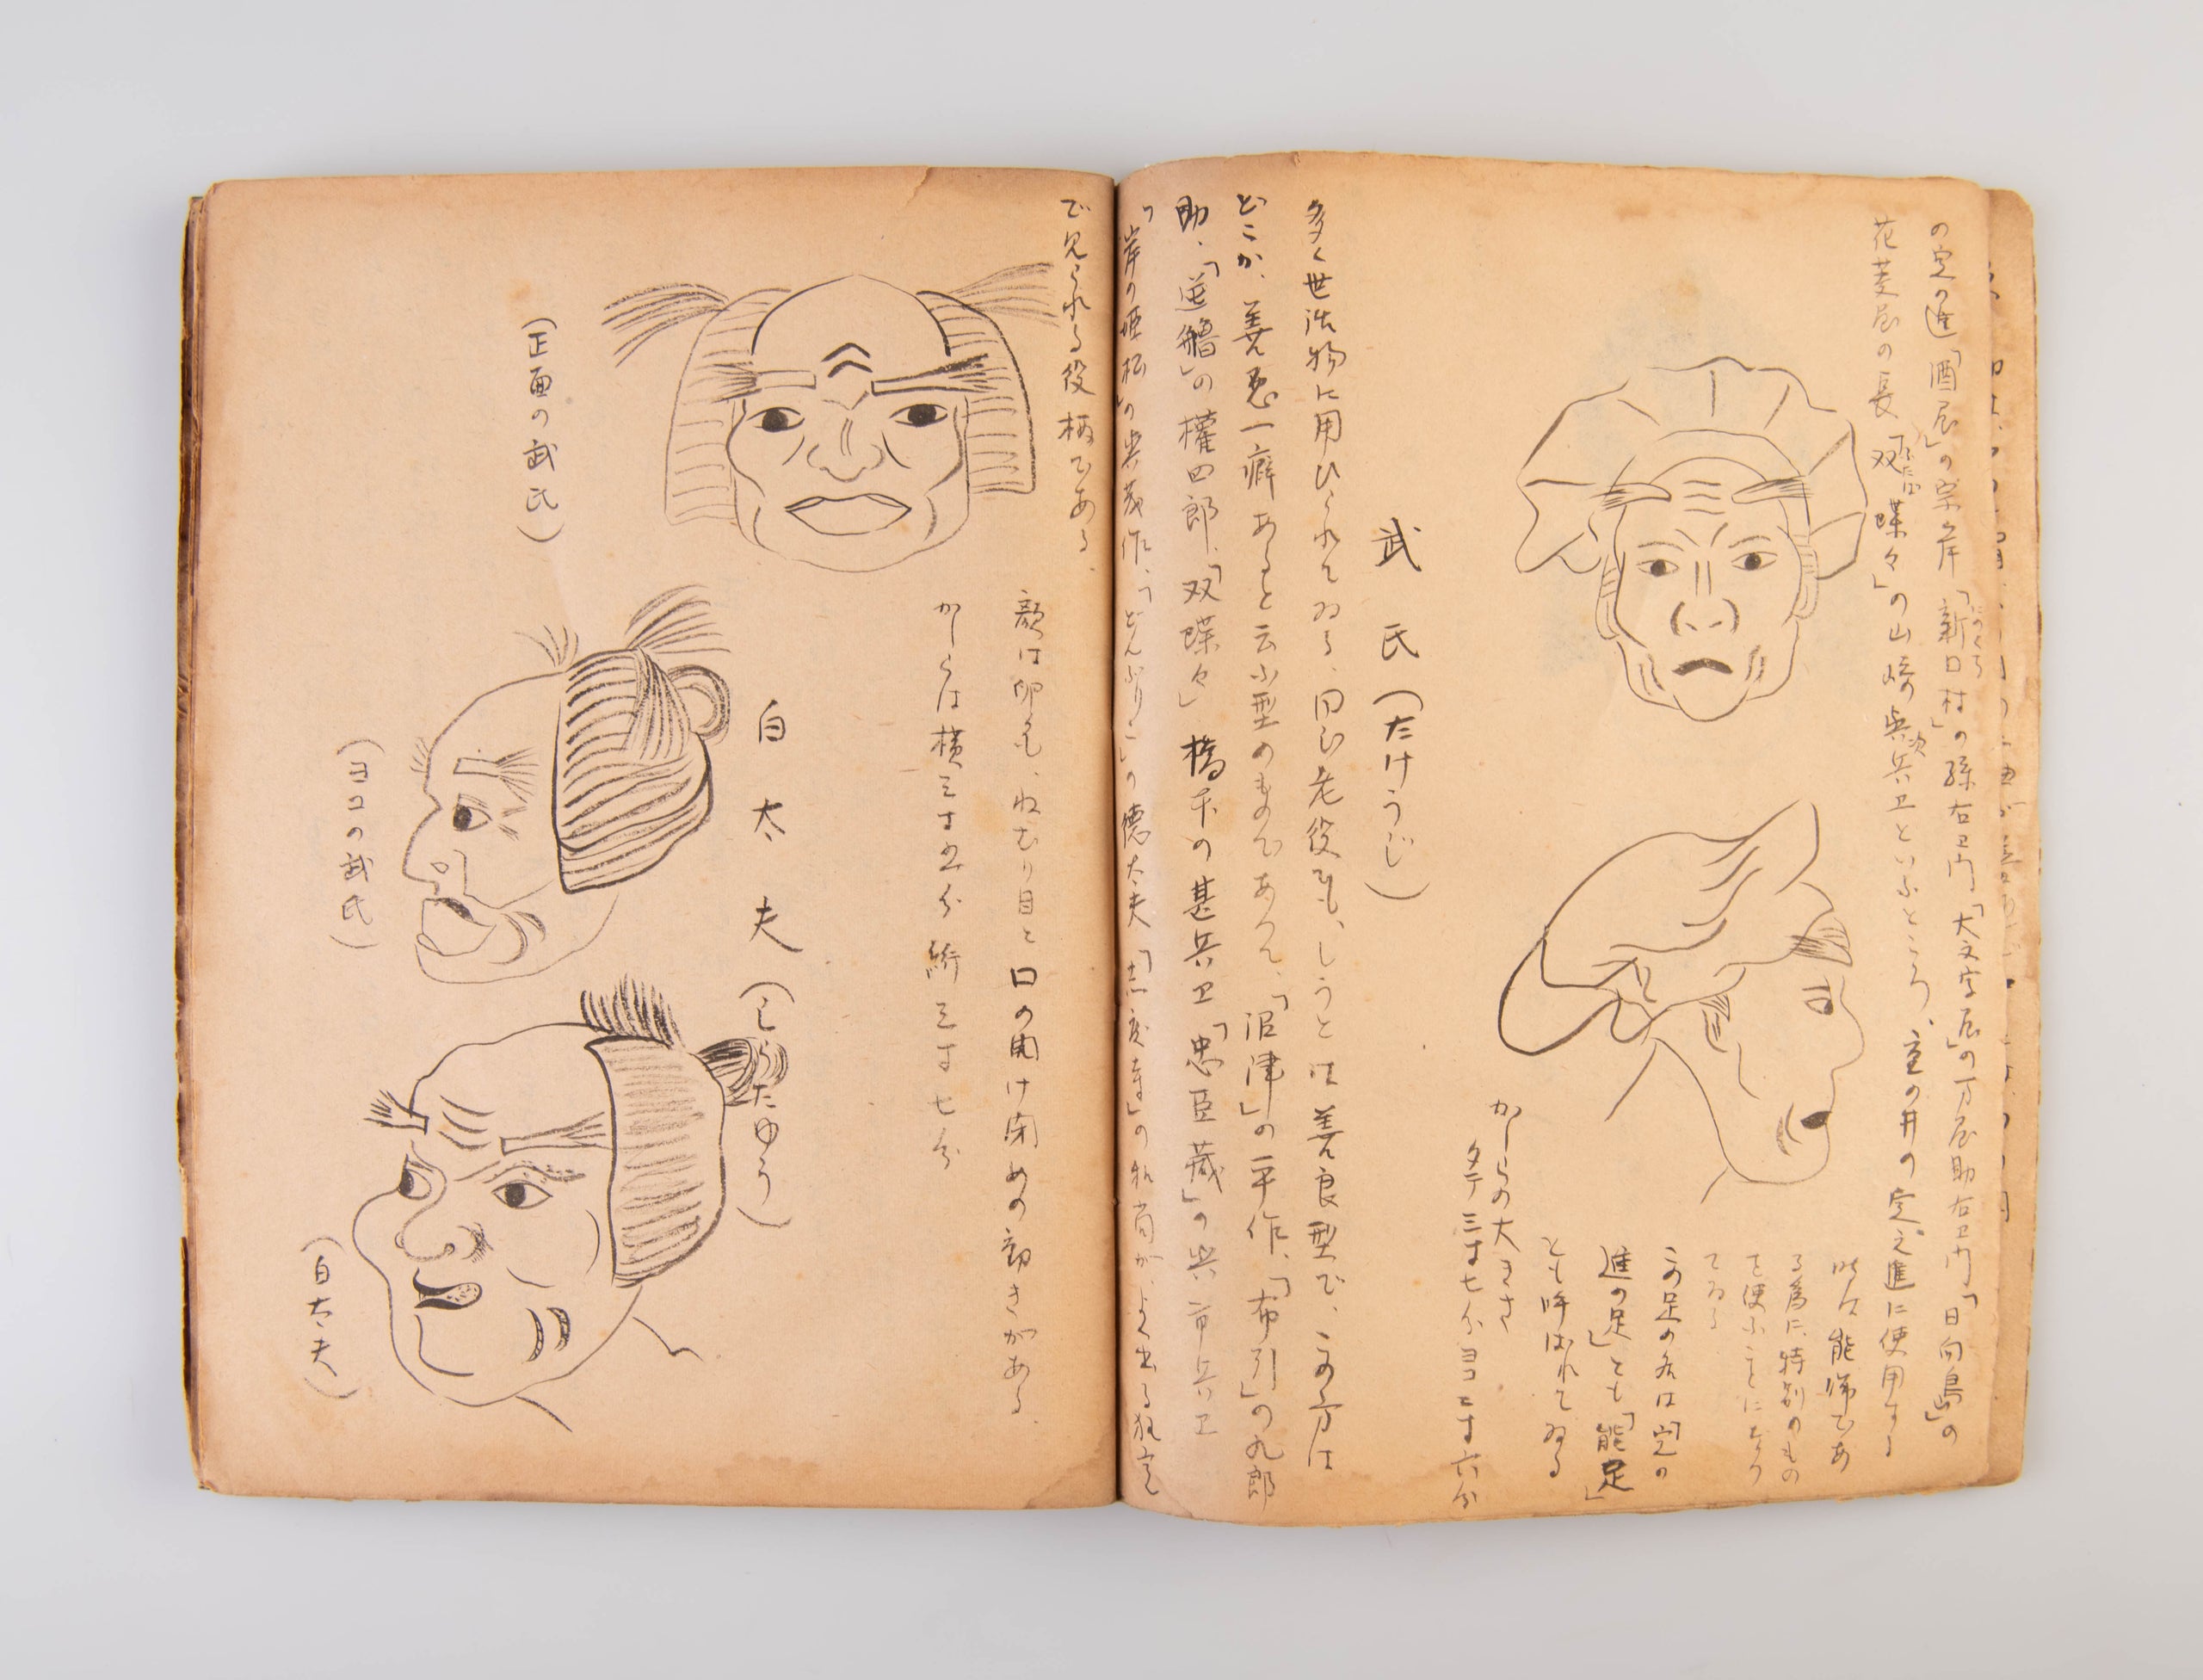 の定の進「酒屋」の宗岸「新口村」の孫右卫门、「大文字屋」の万屋助右卫门「日向島」の
にのくち
花菱屋の長「双蝶々」の山崎の与次兵卫といふところ、重の井の定之進に使用する
ふたば
此は能師であ
る為に、特別のもの
を使ふことになつ
てゐる
この足の名は「定の
進の足」とも「能足」
とも呼ばれてゐる
かしらの大きさ
タテ三寸七分ヨコ三寸六分
武氏(たけうじ)
多く世話物に用ひられてゐる、同じ老役でも、しうとは善良型で、この方は
どこか、善悪一癖あると云ふ型のものであつて、「沼津」の平作、「布引」の九郎
助、「逆艪」の權四郎、「双蝶々」橋本の甚兵卫「忠臣蔵」の与市兵卫
「岸の姫松」の与茂作、「どんぶりこ」の徳太夫「志度寺」の和尚が、よく出る狂言
で見られる役柄である、
(正面の武氏)
顔は卵色、ねむり目と口の開け閉めの動きがある、
かしらは横三寸五分 縦三寸七分
白太夫(しらたゆう)
(ヨコの武氏)
(白太夫)